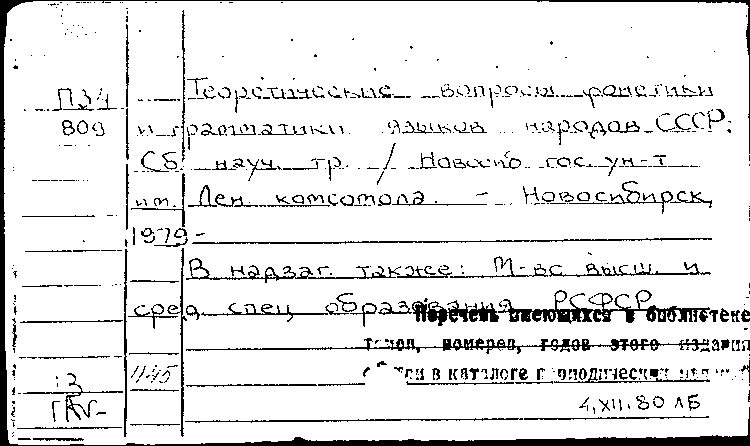 П34 Теоретические вопросы фонетики
809 и грамматики языков народов СССР:
Сб. науч. тр. / Новосиб гос. ун-т
им. Лен. комсомола. – Новосибирск,
1979-
В надзаг. также: М-во высш. и
сред. спец образования РСФСР
Перечень имеющихся в библиотеке
томов, номеров, годов этого издания
в каталоге периодических
1145
4.XII.80 ЛБ